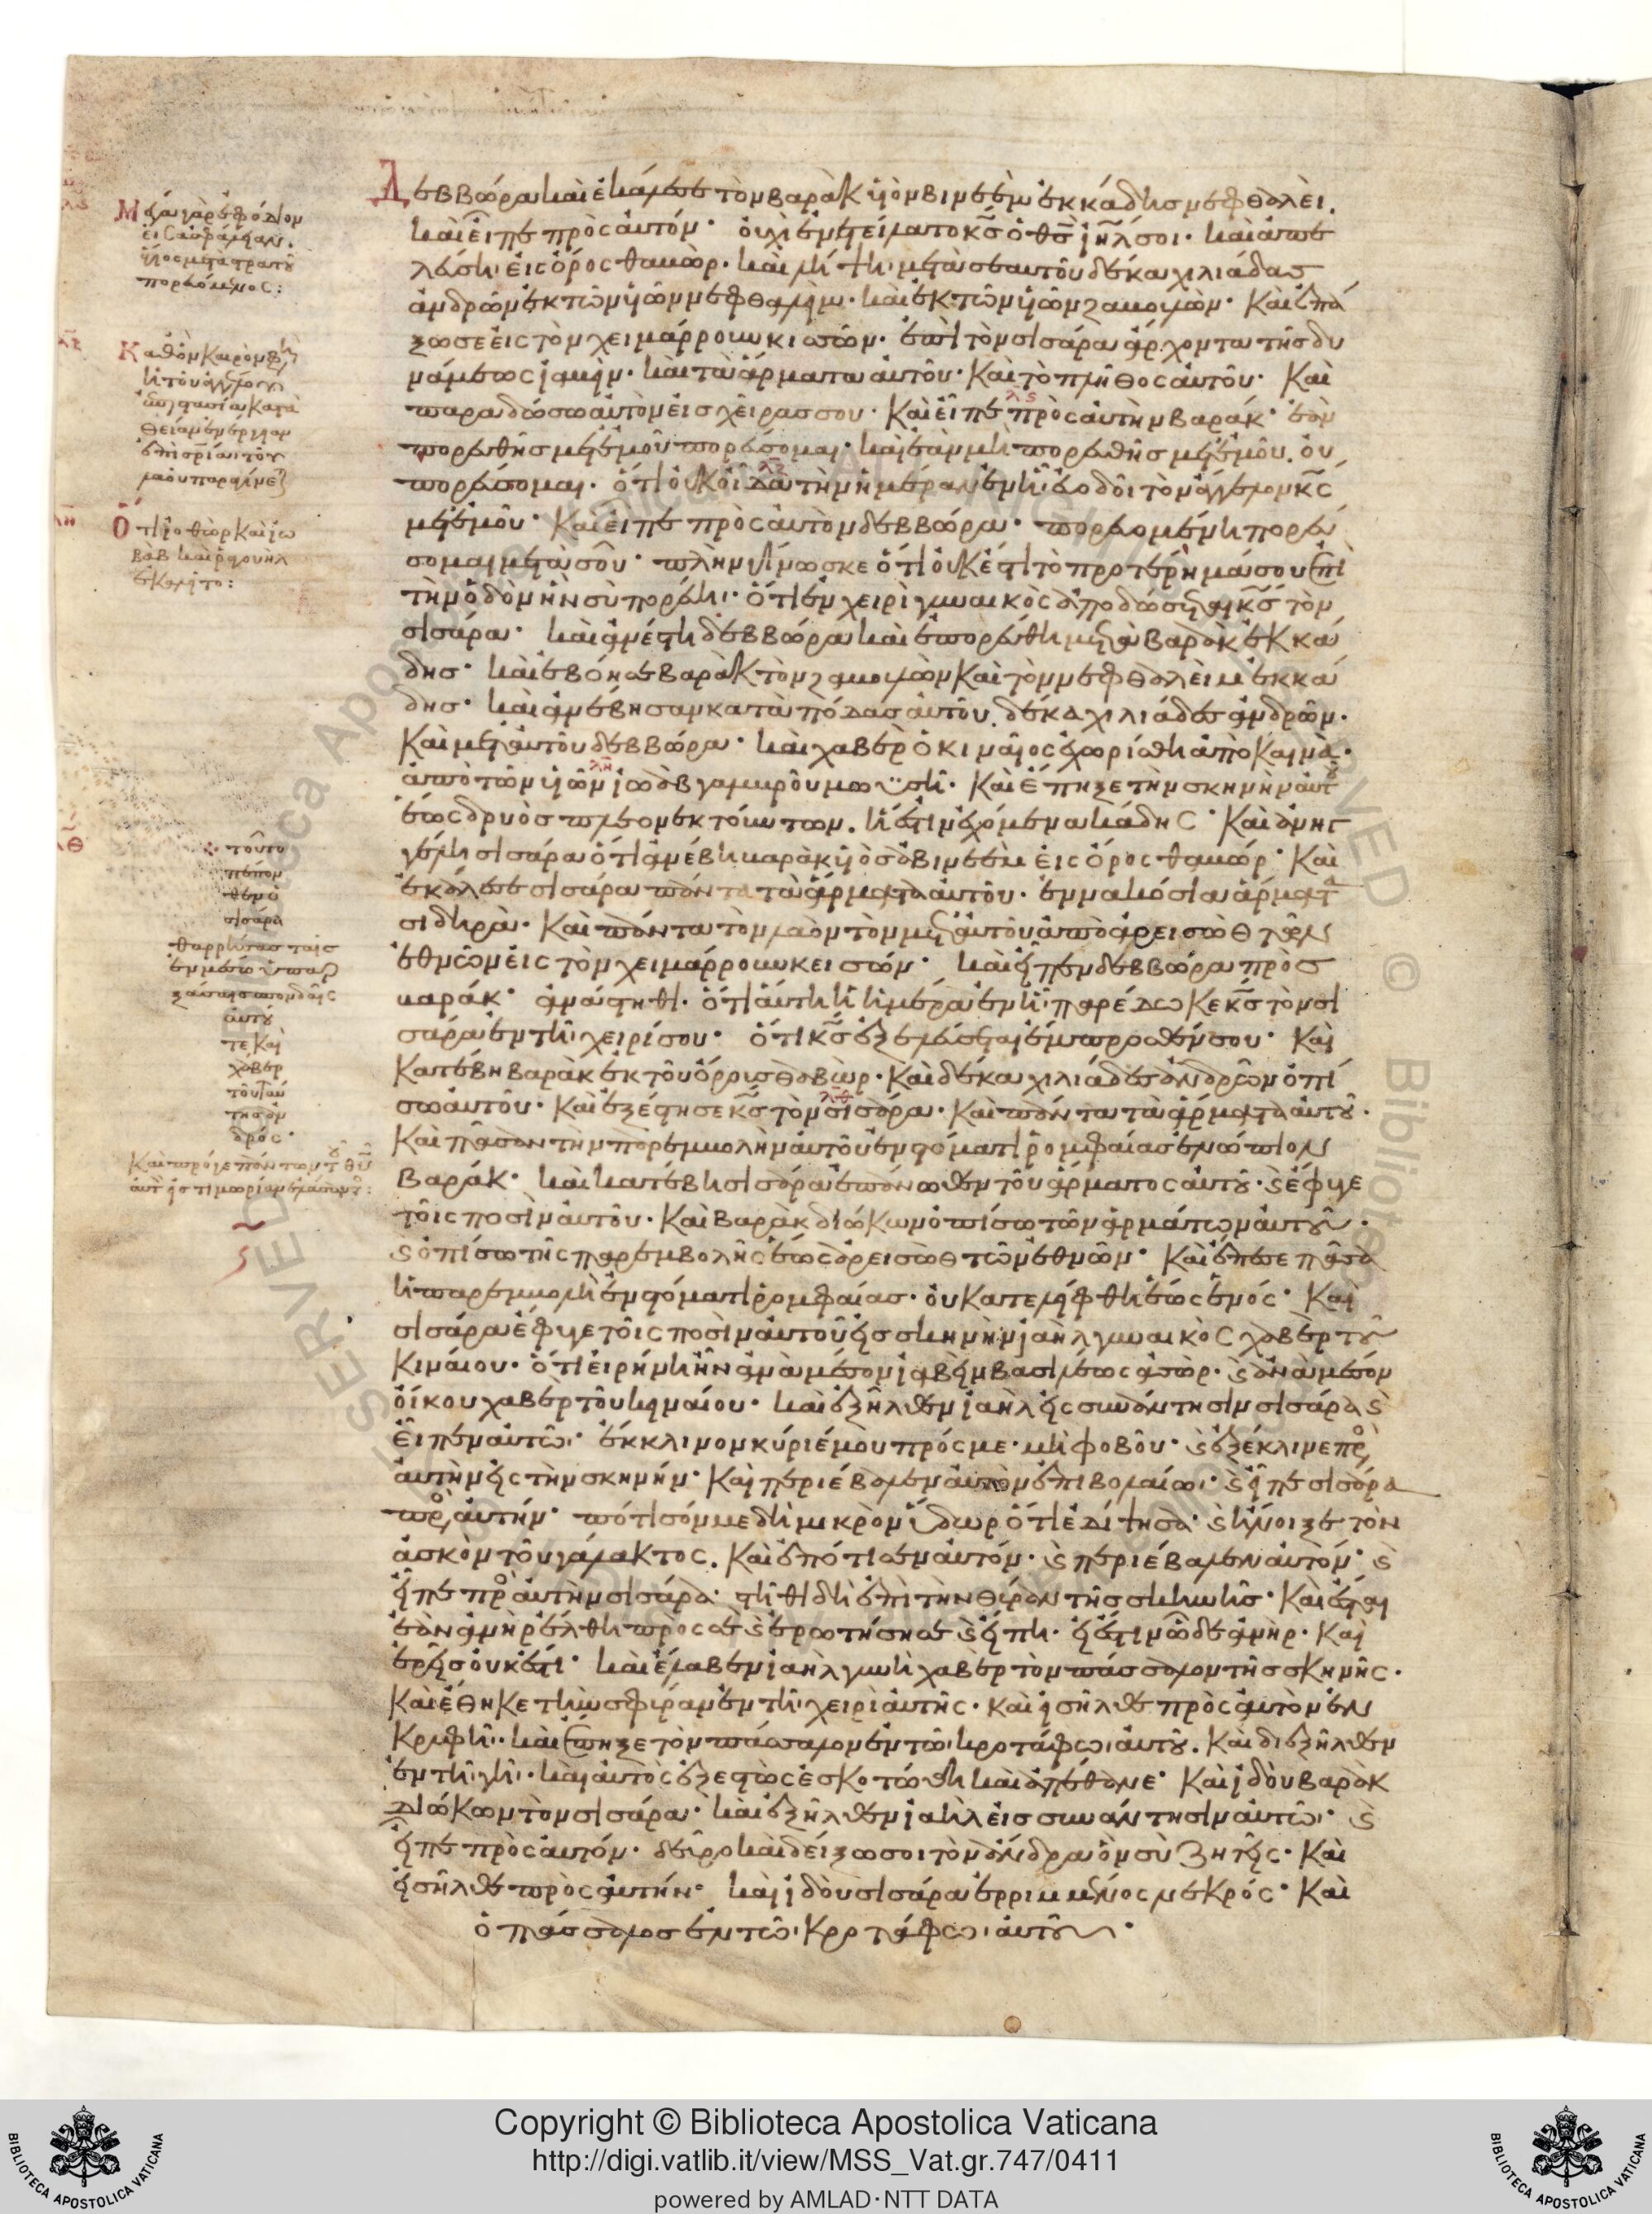 Δεββώρα καὶ ἐκάλεσε τὸν βαρὰκ υἱὸν βινεὲμ ἐκ κάδης νεφθαλεί.
καὶ εἶπε πρὸς αὐτόν· οὐχὶ ἐνετείλατο κ̅σ̅ ὁ θ̅σ̅ ι̅η̅λ̅ σοι· καὶ ἀπε
λεύση εἰς ὄρος θαβώρ· καὶ λήψη μετὰ σεαυτοῦ δέκα χιλιάδας
ἀνδρῶν ἐκ τῶν υἱῶν νεφθαλὴμ· καὶ ἐκ τῶν υἱῶν ζαβουλών· Καὶ ἐπά
ξω σε εἰς τὸν χειμάρρουν κισῶν· ἐπὶ τὸν σισάρα ἄρχοντα τῆς δυ
νάμεως ἰαβὶν· καὶ τὰ ἅρματα αὐτοῦ· Καὶ τὸ πλῆθος αὐτοῦ· Καὶ
παραδώσω αὐτὸν εἰς χεῖρας σου· Καὶ εἶπε πρὸς αὐτὴν βαράκ· ἐὰν
πορευθῆς μετ' ἐμοῦ πορεύσομαι· καὶ ἐὰν μὴ πορευθῆς μετ' ἐμοῦ· οὐ
πορεύσομαι· ὅτι οὐκ οἶδα τὴν ἡμέραν ἐν ἧ εὐοδοῖ τὸν ἄγγελον κ̅ς̅
μετ' ἐμοῦ· Καὶ εἶπε πρὸς αὐτὸν δεββώρα· πορευομένη πορεύ
σομαι μετὰ σοῦ· πλὴν γίνωσκε ὅτι οὐκ ἔσται τὸ προτέρημά σου ἐπὶ
τὴν ὁδὸν ἣν σὺ πορεύη· ὅτι ἐν χειρὶ γυναικὸς ἀποδώσεται κ̅σ̅ τὸν
σισάρα· καὶ ἀνέστη δεββώρα καὶ ἐπορεύθη μετὰ βαρὰκ ἐκ κά
δης· καὶ ἐβόησε βαρὰκ τὸν ζαβουλὼν καὶ τὸν νεφθαλεὶμ ἐκ κά
δης· καὶ ἀνέβησαν κατὰ πόδας αὐτοῦ. δέκα χιλιάδες ἀνδρῶν·
Καὶ μετ' αὐτοῦ δεββώρα· καὶ χαβὲρ ὁ κιναῖος ἐχωρίσθη ἀπὸ καινὰ·
ἀπὸ τῶν υἱῶν ἰωὰβ γαμβροῦ μωϋσῆ· Καὶ ἔπηξε τὴν σκηνὴν αὐτοῦ
ἕως δρυὸς πλεονεκτούντων. ἥ ἐστιν ἐχόμενα κάδης· Καὶ ἀνηγ
γέλη σισάρα ὅτι ἀνέβη βαρὰκ υἱὸς ἀβινεὲμ εἰς ὄρος θαβώρ· Καὶ
ἐκάλεσε σισάρα πάντα τὰ ἅρματα αὐτοῦ· ἐννακόσια ἅρματα
σιδηρᾶ· Καὶ πάντα τὸν λαὸν τὸν μετ' αὐτοῦ ἀπὸ ἀρεισὼθ τῶν
ἐθνῶν εἰς τὸν χειμάρρουν κεισών· καὶ εἶπεν δεββώρα πρὸς
βαράκ· ἀνάστηθι· ὅτι αὕτη ἡ ἡμέρα ἐν ἧ παρέδωκε κ̅ς̅ τὸν σι
σάρα ἐν τῆ χειρί σου· ὅτι κ̅σ̅ ἐξελεύσεται ἔμπροσθέν σου· Καὶ
κατέβη βαρὰκ ἐκ τοῦ ὄρρις θαβώρ· Καὶ δέκα χιλιάδες ἀνδρῶν ὀπί
σω αὐτοῦ· Καὶ ἐξέστησε κ̅σ̅ τὸν σισάρα· Καὶ πάντα τὰ ἅρματα αὐτοῦ·
Καὶ πᾶσαν τὴν παρεμβολὴν αὐτοῦ ἐν στόματι ῥομφαίας ἐνώπιον
βαράκ· καὶ κατέβη σισάρα ἐπάνωθεν τοῦ ἅρματος αὐτοῦ· ϗ ἔφυγε
τοῖς ποσὶν αὐτοῦ· Καὶ βαρὰκ διώκων ὀπίσω τῶν ἁρμάτων αὐτοῦ·
ϗ ὀπίσω τῆς παρεμβολῆς ἕως ἀρεισὼθ τῶν ἐθνῶν· Καὶ ἔπεσε πᾶσα
ἡ παρεμβολὴ ἐν στόματι ῥομφαίας· οὐ κατελήφθη ἕως ἑνός· Καὶ
σισάρα ἔφυγε τοῖς ποσὶν αὐτοῦ εἰς σκηνὴν ἰαὴλ γυναικὸς χαβὲρ τοῦ
κιναίου· ὅτι εἰρήνη ἦν ἀνὰ μέσον ἰαβεὶν βασιλέως ἀσώρ· ϗ ἀνὰ μέσον
οἴκου χαβὲρ τοῦ κιναίου· καὶ ἐξῆλθεν ἰαὴλ εἰς συνάντησιν σισάρα ϗ
εἶπεν αὐτῶ· ἔκκλινον κύριέ μου πρός με· μὴ φοβοῦ· ϗ ἐξέκλινε πρὸς
αὐτὴν εἰς τὴν σκηνήν· Καὶ περιέβαλεν αὐτὸν ἐπιβολαίω· ϗ εἶπε σισάρα
πρὸς αὐτήν· πότισόν με δὴ μικρὸν ὕδωρ ὅτι ἐδίψησα· ϗ ἤνοιξε τὸν
ἀσκὸν τοῦ γάλακτος. Καὶ ἐπότισεν αὐτόν· ϗ περιέβαλεν αὐτόν· ϗ
εἶπε πρὸς αὐτὴν σισάρα· στῆθι δὴ ἐπὶ τὴν θύραν τῆς σκηνῆς· Καὶ ἔσται
ἐὰν ἀνὴρ ἔλθη πρὸς σὲ ϗ ἐρωτήση σε ϗ εἴπη· εἰ ἔστιν ὧδε ἀνήρ· Καὶ
ἐρεῖς οὐκ ἔστι· καὶ ἔλαβεν ἰαὴλ γυνὴ χαβὲρ τὸν πάσσαλον τῆς σκηνῆς·
Καὶ ἔθηκε τὴν σφύραν ἐν τῆ χειρὶ αὐτῆς· καὶ εἰσῆλθε πρὸς αὐτὸν ἐν
κρυφῆ· καὶ ἔπηξε τὸν πάσσαλον ἐν τῶ κροτάφω αὐτοῦ. Καὶ διεξῆλθεν
ἐν τῆ γῆ· καὶ αὐτὸς ἐξεστὼς ἐσκοτώθη καὶ ἀπέθανε· Καὶ ἰδοὺ βαρὰκ
διώκων τὸν σισάρα· καὶ ἐξῆλθεν ἰαὴλ εἰς συνάντησιν αὐτῶ· ϗ
εἶπε πρὸς αὐτόν· δεῦρο καὶ δείξω σοι τὸν ἄνδρα ὃν σὺ ζητεῖς· Καὶ
εἰσῆλθε πρὸς αὐτήν· καὶ ἰδοὺ σισάρα ἐρριμμένος νεκρός· Καὶ
ὁ πάσσαλος ἐν τῶ κροτάφω αὐτοῦ·
πορευόμενος:
Ὅτι ἰοθὼρ καὶ ἰω
βὰβ καὶ ῥαγουὴλ
ἐκαλεῖτο:
τοῦτο
σισάρα
αὐτοῦ
τε καὶ
χάβερ
δρός·
Copyright © Biblioteca Apostolica Vaticana
http://digi.vatlib.it/view/MSS_Vat.gr.747/0411
powered by AMLAD·NTT DATA
BIBLIOTECA APOSTOLICA VATICANA
BIBLIOTECA APOSTOLICA VATICANA